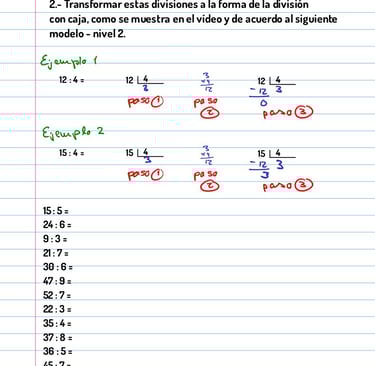 2.- Transformar estas divisiones a la forma de la división
con caja, como se muestra en el video y de acuerdo al siguiente
modelo - nivel 2.
Ejemplo 1
12 : 4 = 12 4 3 12 4
3 x 4 - 12 3
12 0
paso 1 paso 2 paso 3
Ejemplo 2
15 : 4 = 15 4 3 15 4
3 x 4 - 12 3
12 3
paso 1 paso 2 paso 3
15 : 5 =
24 : 6 =
9 : 3 =
21 : 7 =
30 : 6 =
47 : 9 =
52 : 7 =
22 : 3 =
35 : 4 =
37 : 8 =
36 : 5 =
45 : 7 =